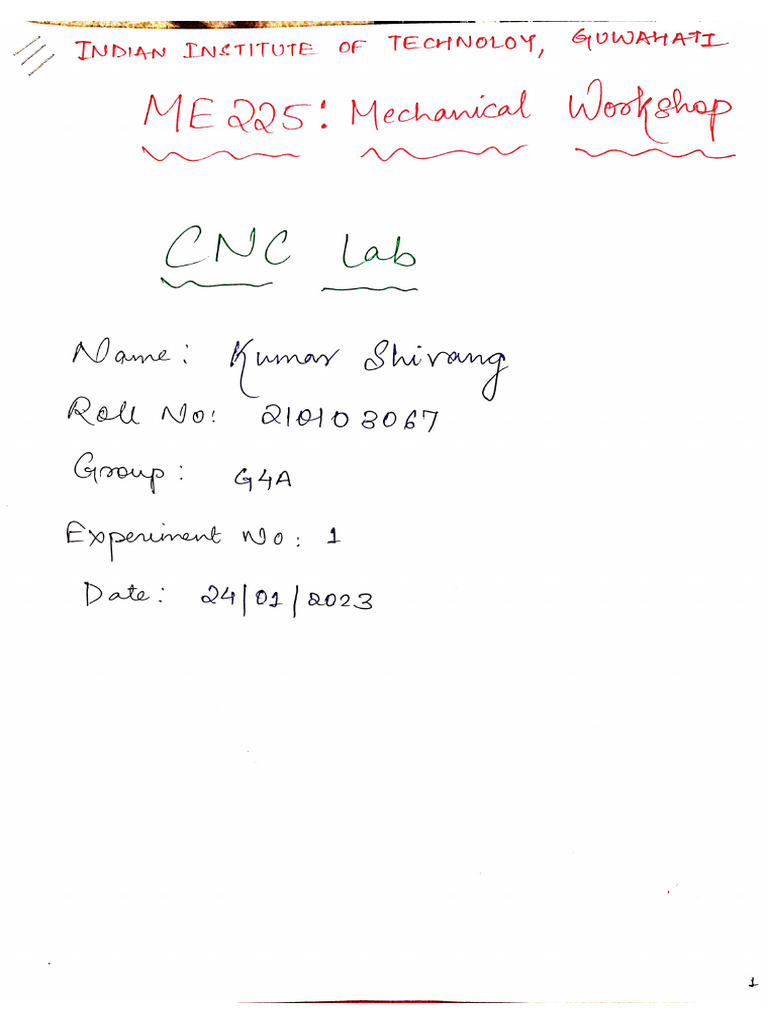 INDIAN INSTITUTE OF TECHNOLOY, GUWAHATI
ME225: Mechanical Workshop
CNC Lab
Name: Kumar Shivang
Roll No: 210103067
Group: G4A
Experiment No: 1
Date: 24/01/2023
1